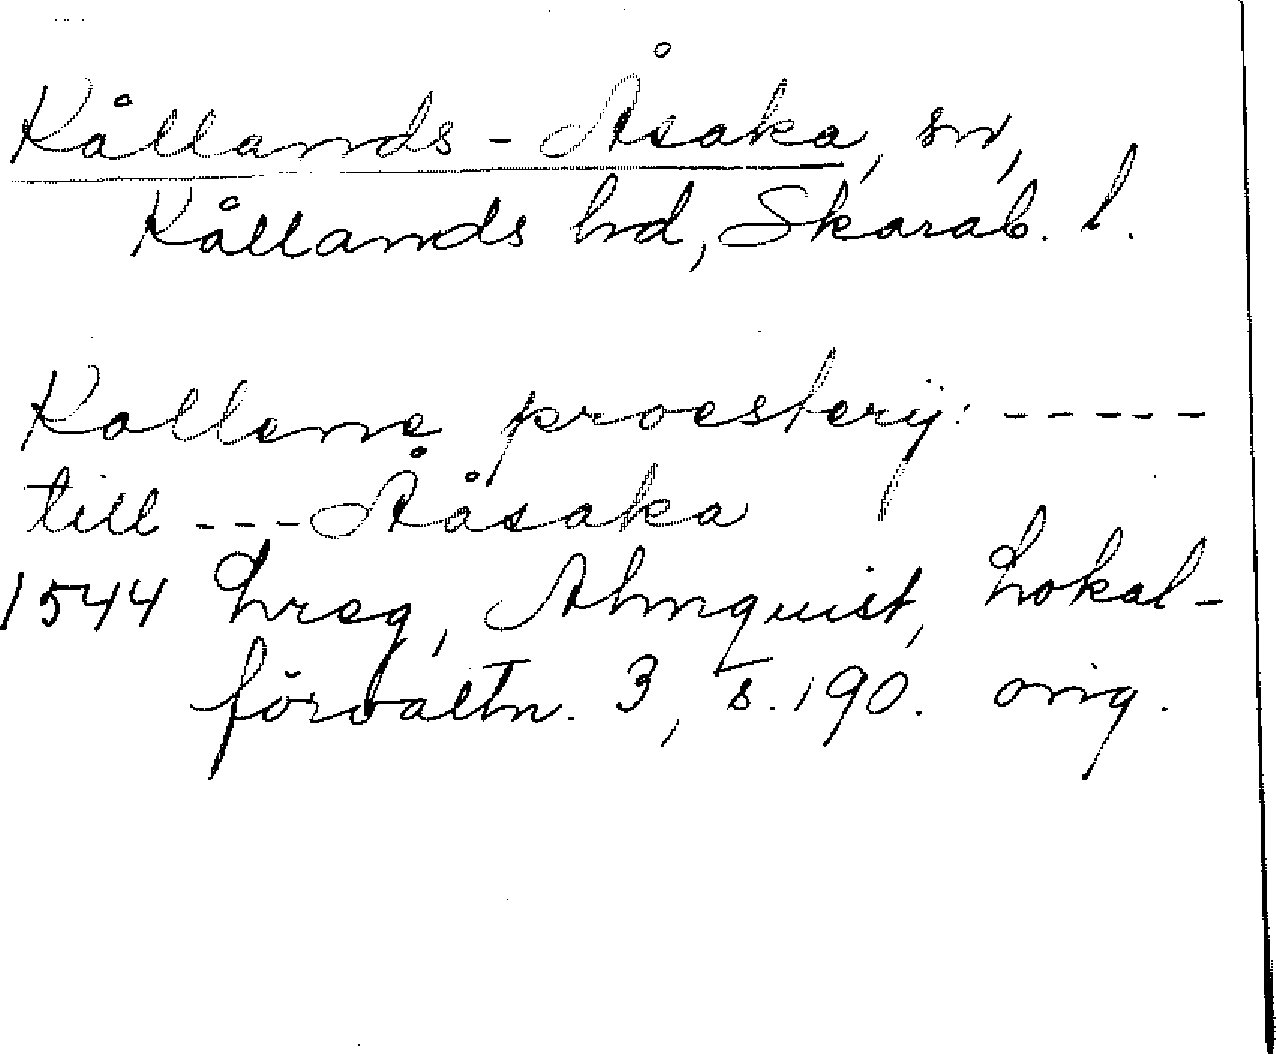 Kållands-Åsaka, sn,
Kållands hd, Skarab. l.
Kollene proesterij: -----
till --- Ååsaka
1544 Lreg, Almquist, Lokal-
förvaltn. 3, s. 190. orig.